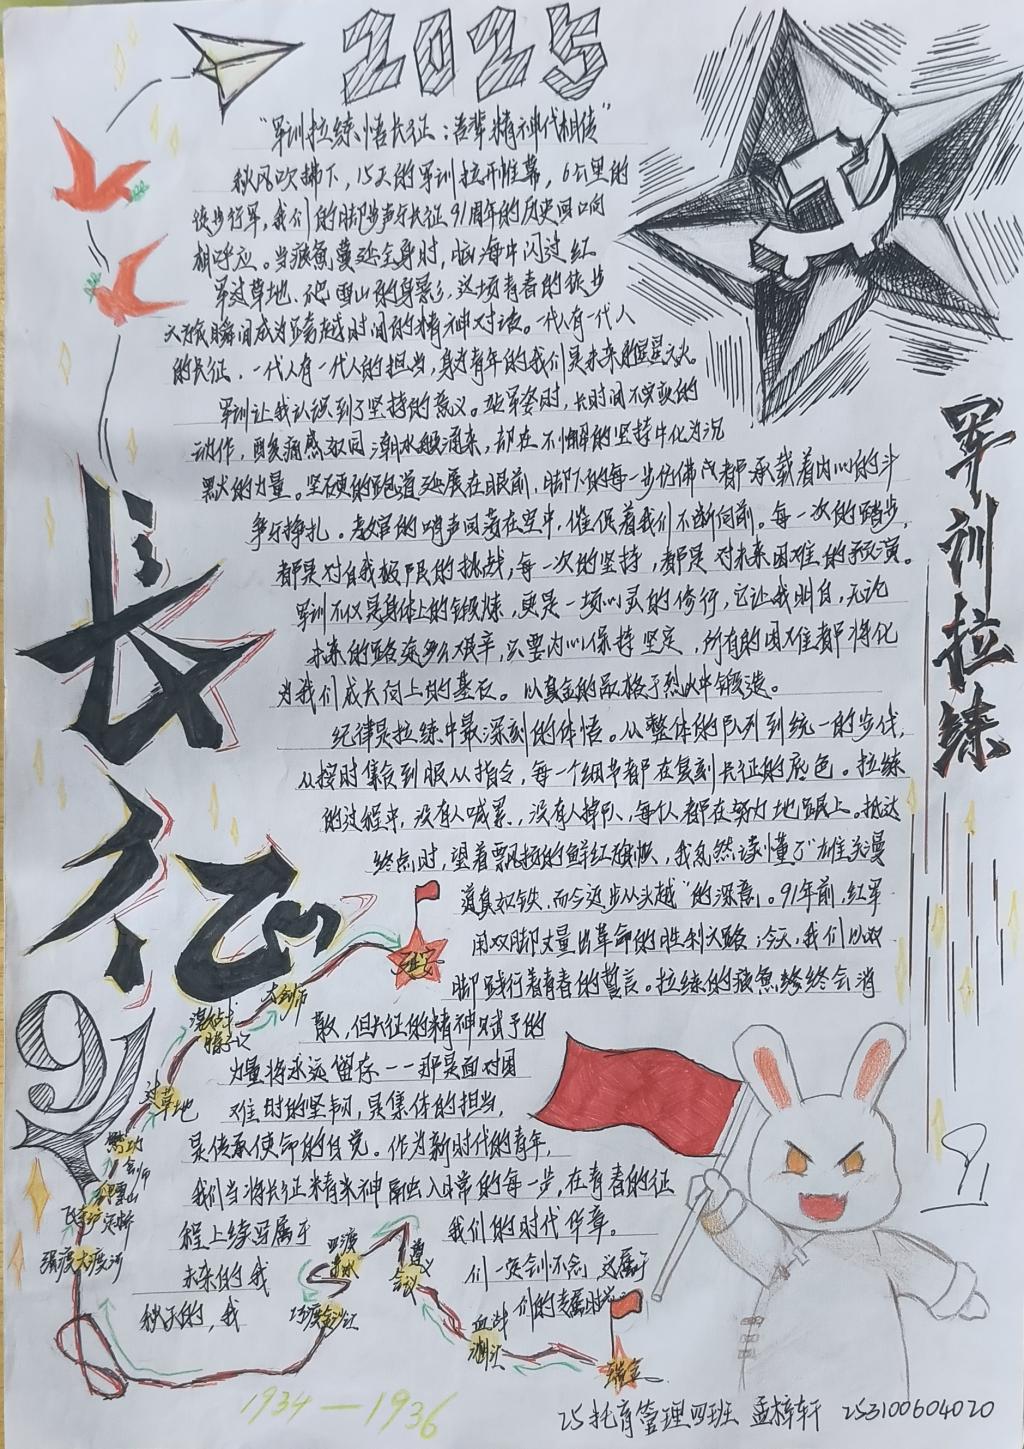 2025
“军训拉练悟长征：吾辈精神代相传”
秋风吹拂下，15天的军训拉开帷幕，6公里的
徒步行军，我们的脚步声与长征91周年的历史回响
相呼应。当疲惫蔓延全身时，脑海中闪过红
军过草地、爬雪山的身影，这场青春的徒步
又好似瞬间成为跨越时间的精神对话。一代人有一代人
的长征，一代人有一代人的担当，身为青年的我们是未来的星星之火。
军训让我认识到了坚持的意义。站军姿时，长时间不变的
动作，酸痛感如同潮水般涌来，却在不懈的坚持中化为沉
默的力量。坚硬的跑道延展在眼前，脚下的每一步仿佛都承载着内心的斗
争与挣扎。教官的哨声回荡在空中，催促着我们不断向前。每一次的踏步，
都是对自我极限的挑战，每一次的坚持，都是对未来困难的预演。
军训不仅是身体上的锻炼，更是一场心灵的修行，它让我明白，无论
未来的路途多么艰辛，只要内心保持坚定，所有的困难都将化
为我们成长向上的基石。以真金的品格于烈火中锻造。
纪律是拉练中最深刻的体悟。从整体的队列到统一的步伐，
从按时集合到服从指令，每一个细节都在复刻长征的底色。拉练
的过程中，没有人喊累，没有人掉队，每个人都在努力地跟上。抵达
终点时，望着飘扬的鲜红旗帜，我忽然读懂了“雄关漫
道真如铁，而今迈步从头越”的深意。91年前，红军
用双脚丈量出革命的胜利之路；今天，我们以双
脚践行着青春的誓言。拉练的疲惫终会消
散，但长征的精神赋予的
力量将永远留存——那是面对困
难时的坚韧，是集体的担当，
是传承使命的自觉。作为新时代的青年，
我们当将长征精神融入日常的每一步，在青春的征
程上续写属于 我们的时代华章。
未来的我 们一定会列不念，这属于
秋天的，我 们的专属时光
军训拉练
长征
91
91
延安
大会师
激战
腊子口
过草地
懋功
会师
爬雪山
飞夺泸定桥
强渡大渡河
巧渡金沙江
四渡
赤水
遵义
会议
血战
湘江
瑞金
1934—1936
25托育管理四班 孟梓轩 253100604020